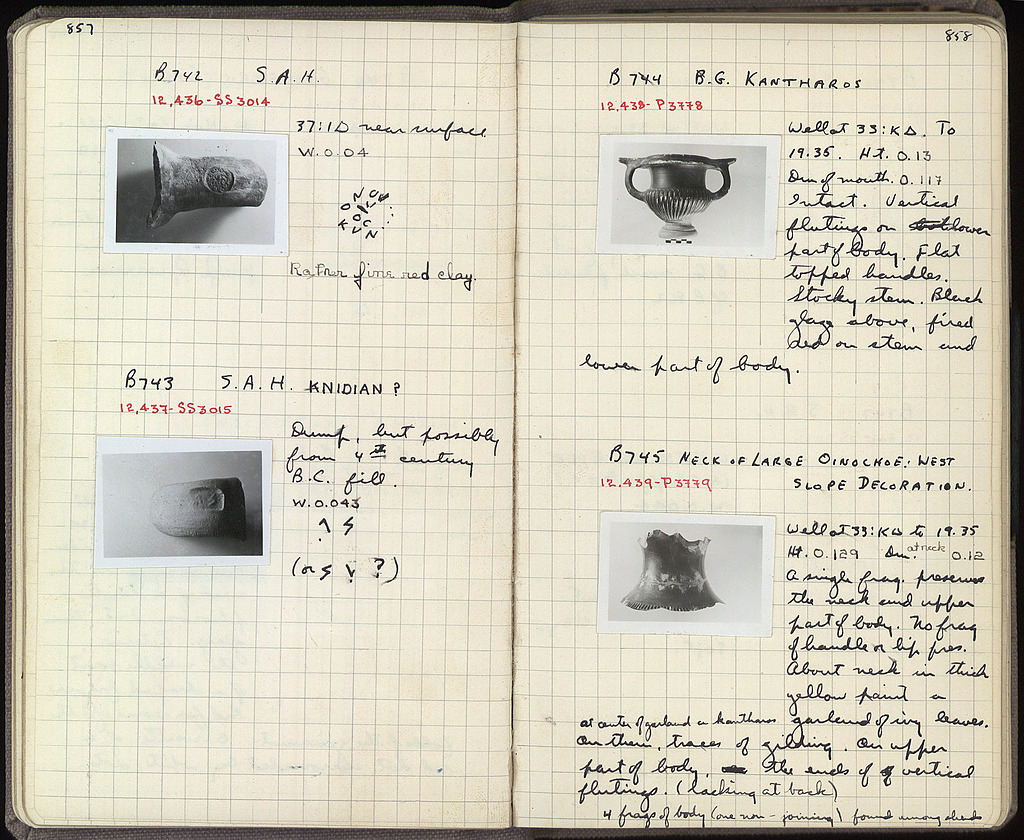 857
B742 S.A.H.
12,436-SS3014
37:1Δ near surface
W. 0.04
Rather fine red clay.
B743 S.A.H. KNIDIAN ?
12,437-SS3015
Dump, but possibly
from 4th century
B.C. fill.
W. 0.043
(or ?)
858
B744 B.G. KANTHAROS
12,438-P3778
Well at 33:KΔ. To
19.35. Ht. 0.13
Dm of mouth. 0.117
Intact. Vertical
flutings on lower
part of body. Flat
topped handles.
Stocky stem. Black
glaze above, fired
red on stem and
lower part of body.
B745 NECK OF LARGE OINOCHOE: WEST
SLOPE DECORATION.
12,439-P3779
Well at 33:KΔ to 19.35
Ht. 0.129 Dm. at neck 0.12
A single frag. preserves
the neck and upper
part of body. No frag
of handle or lip pres.
About neck in thick
yellow paint a
garland of ivy leaves.
at center of garland a kantharos
On them, traces of gilding. On upper
part of body, the ends of vertical
flutings. (lacking at back)
4 frags of body (one non-joining) found among sherds